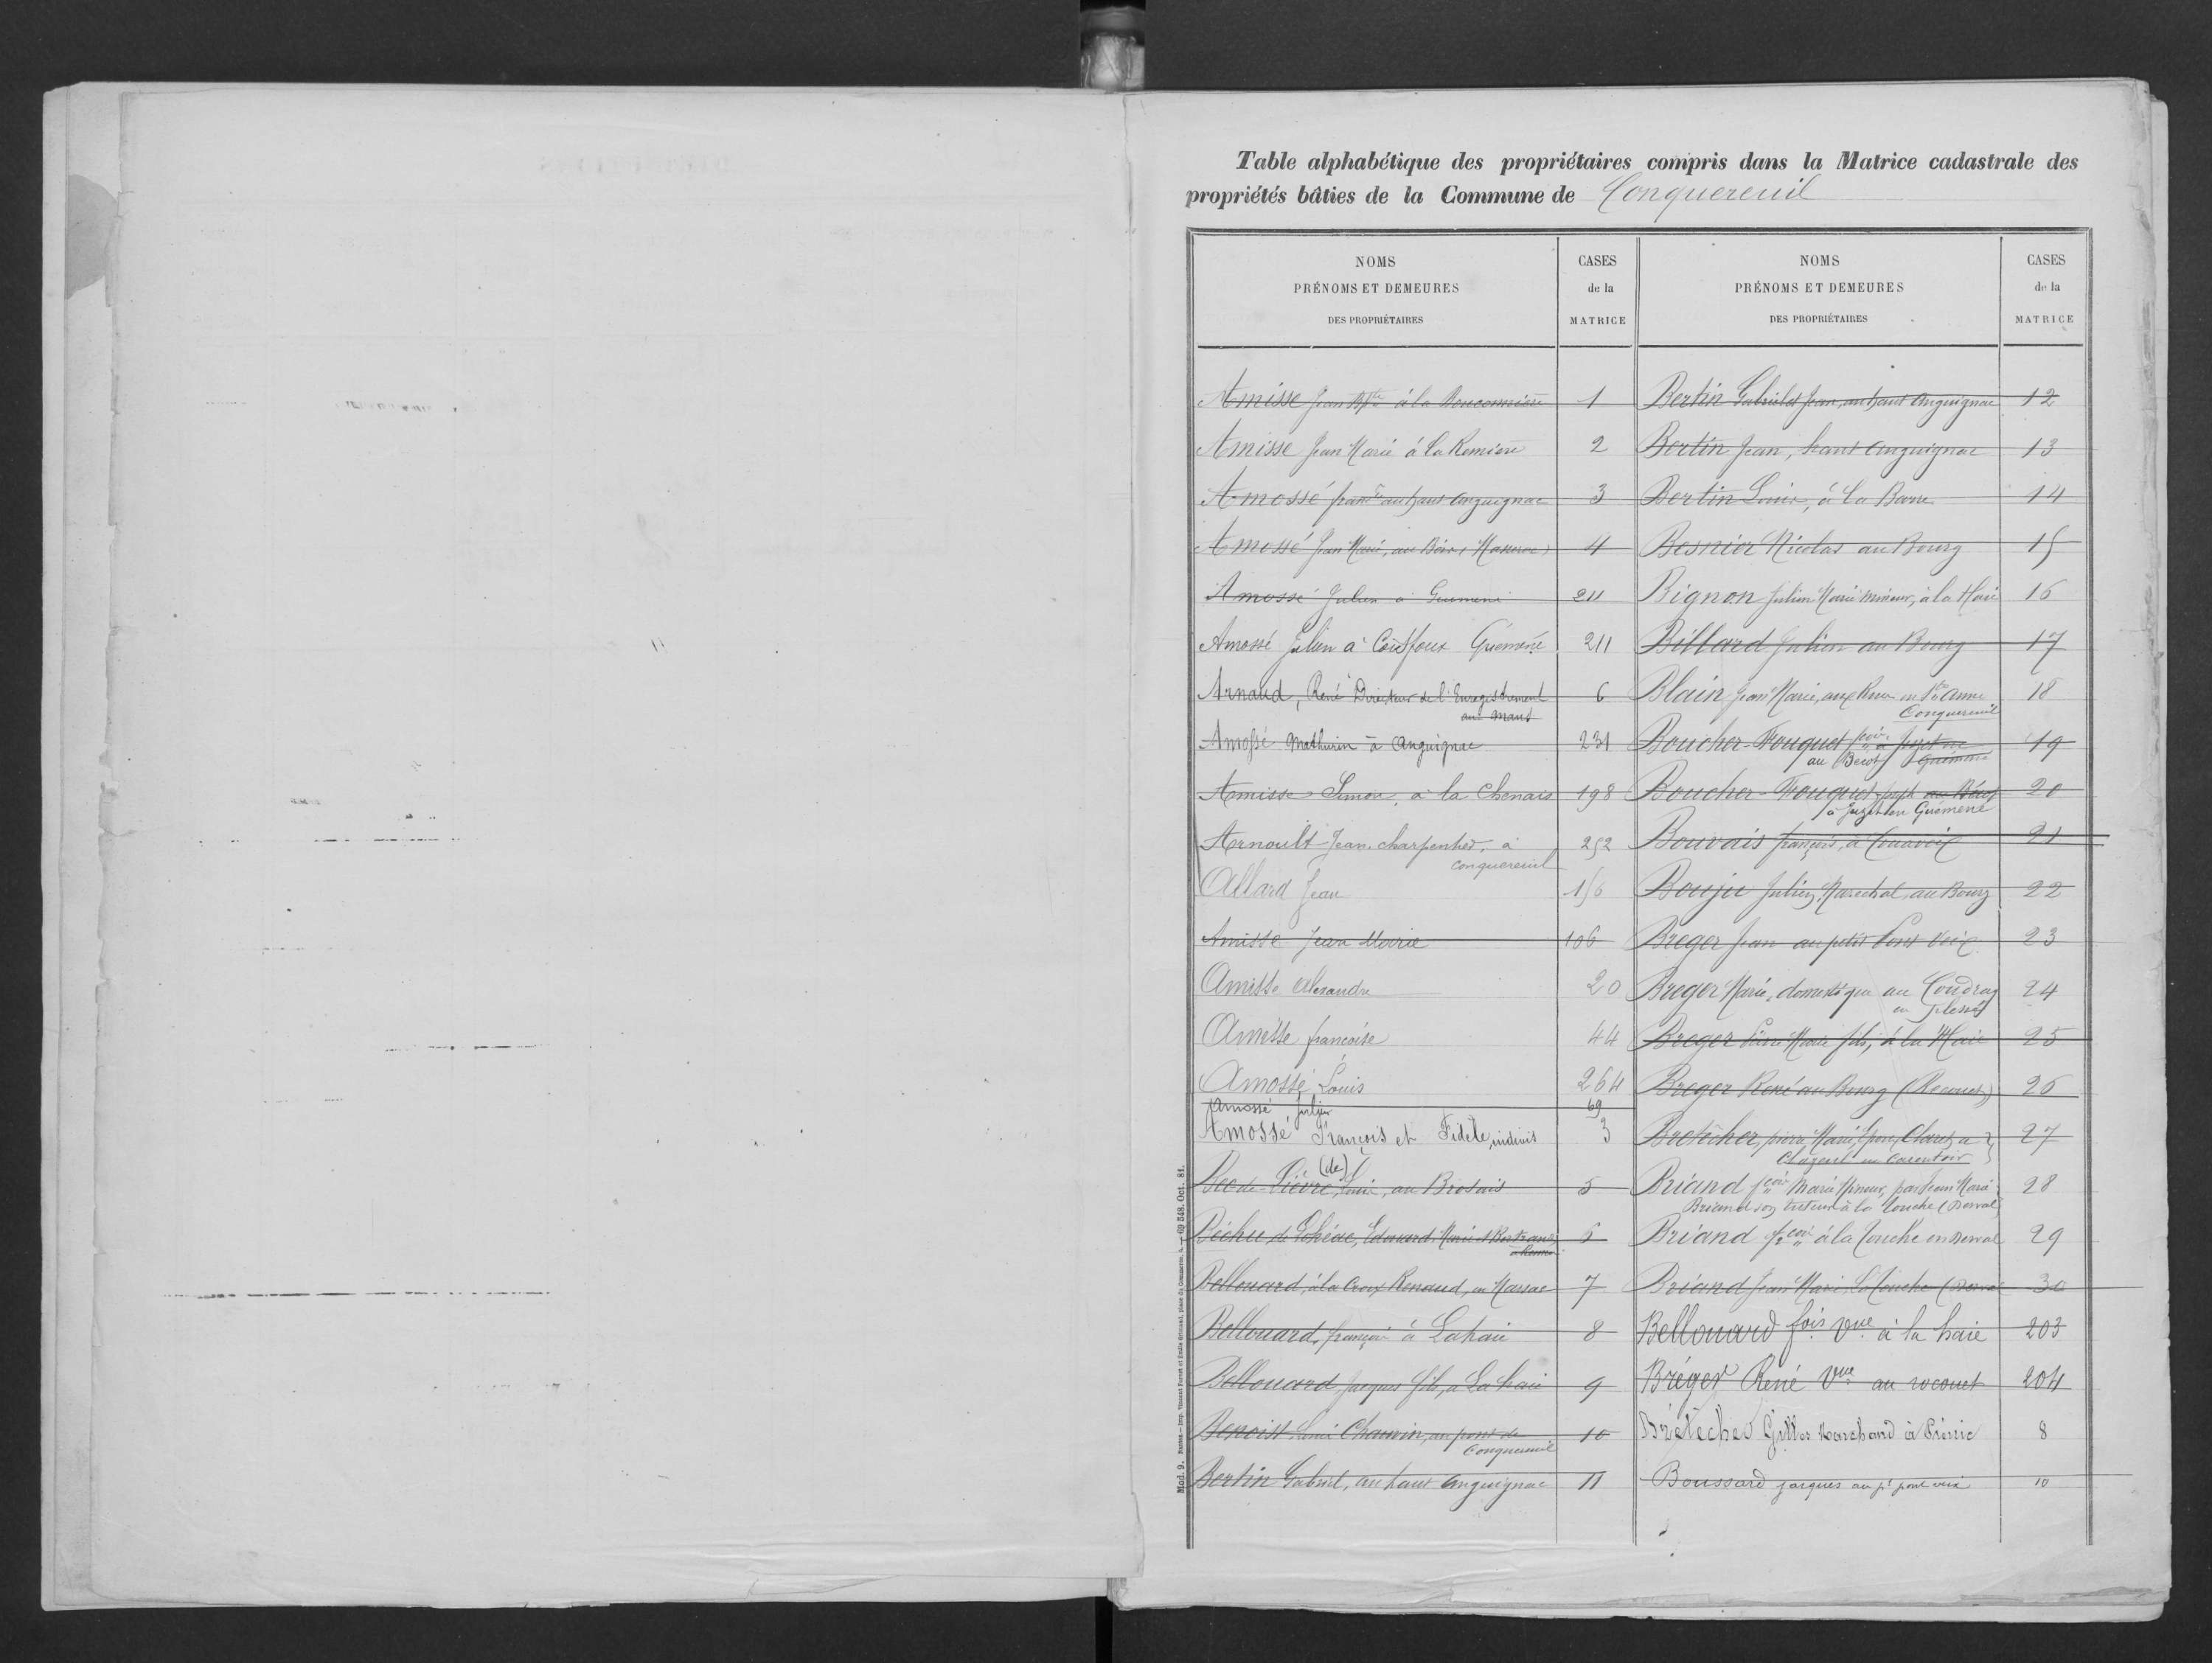 Table alphabétique des propriétaires compris dans la Matrice cadastrale des
propriétés bâties de la Commune de Conquereuil
NOMS
PRÉNOMS ET DEMEURES
DES PROPRIÉTAIRES
CASES
de la
MATRICE
NOMS
PRÉNOMS ET DEMEURES
DES PROPRIÉTAIRES
CASES
de la
MATRICE
Amisse Jean Bpte à la 1
Amisse Jean Marie à la Remisere 2
Amossé jean au haut anguignac 3
Amossé Jean Marie, au Massérac 4
Amossé Julien à Guémené 211
Amossé Julien à Coisfoux Guéméné 211
Arnaud, René Directeur de l'Enregistrement 6
au mans
Amossé Mathurin à anguignac 231
Amisse Simon, à la Chenais 198
Arnoult Jean, charpentier, à 252
conquereuil
Allard Jean 156
Amisse Jean Marie 106
Amisse Alexandre 20
Amisse françoise 44
Amossé Louis 264
Amossé Julien 69
Amossé François et Fidèle, indivis 3
Bec de Lièvre (de), au Brosais 5
Béchu de Lohéac, Edouard Marie et Bertrand 6
à Rennes
Bellouard, à la Croix Renaud, en Marsac 7
Bellouard, françois à Lahaie 8
Bellouard Jacques fils, à La haie 9
Benoist Chauvin, au pont de 10
Conquereuil
Bertin Gabriel, au haut anguignac 11
Bertin Gabriel et Jean, au haut anguignac 12
Bertin Jean, haut anguignac 13
Bertin Louis, à la Barre 14
Besnier Nicolas au Bourg 15
Bignon Julien Marie mineur, à la Haie 16
Billard Julien au Bourg 17
Blain Jean Marie, en Ste anne 18
Conquereuil
Boucher-Fouquet à Juzet en 19
au Berot Guémené
Boucher-Fouquet Joseph au Bérot 20
à Juzet en Guémené
Bouvais françois, à 21
Bouju Julien, Maréchal, au Bourg 22
Breger Jean au petit Pont Veix 23
Breger Marie, domestique au Coudray 24
en plessé
Breger Marie fils, à la Haie 25
Breger René au Bourg (Recouet) 26
Bretécher, pierre Marie, Epoux Claret, à 27
en Carentoir
Briand fçois Marie Mineur, par Jean Marie 28
Briand son tuteur à la Touche (Derval)
Briand fçois à la Touche en Derval 29
Briand Jean Marie, la Touche (Derval 30
Bellouard fois Vve à la haie 203
Bréger René Vve au rocouet 204
Brétécher Gilles Marchand à 8
Boussard jacques au pt pont veix 10
Mod. 9.
69 348. Oct. 81.